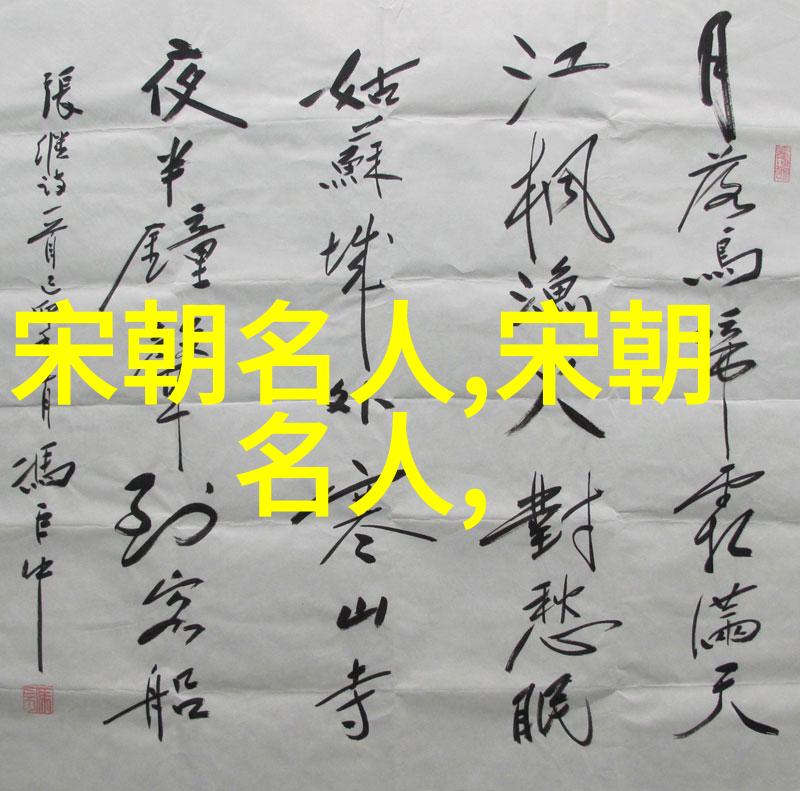 月落烏啼霜滿天
江楓漁火對愁眠
姑蘇城外寒山寺
夜半鐘聲到客船
張继诗一首
宋朝名人,宋朝
名人,